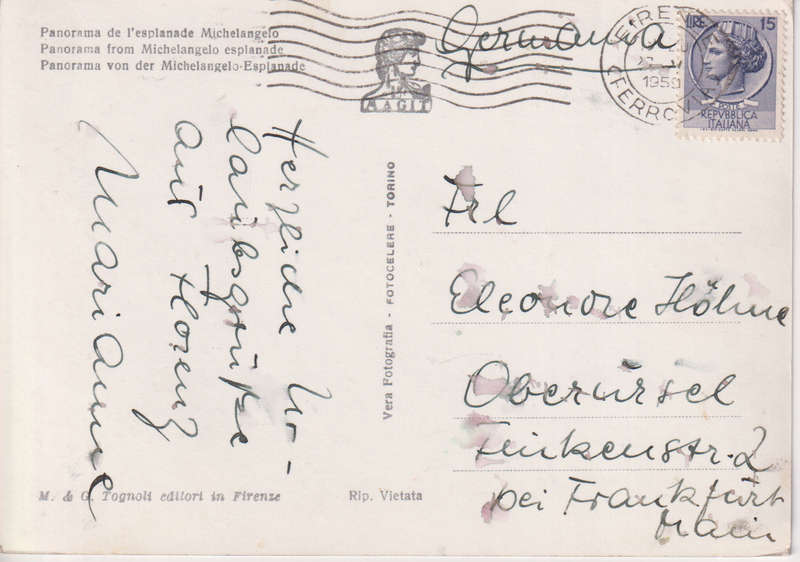 Panorama de l'esplanade Michelangelo
Panorama from Michelangelo esplanade
Panorama von der Michelangelo-Esplanade
MAGIT
Germania
FIRENZE
FERROVIA
LIRE 15
POSTE
REPVBBLICA
ITALIANA
Herzliche Ur-
laubsgrüße
aus Florenz
Marianne
Vera Fotografia - FOTOCELERE - TORINO
Frl
Eleonore Höhne
Oberursel
Finkenstr. 2
bei Frankfurt
Main
M. & G. Tognoli editori in Firenze
Rip. Vietata